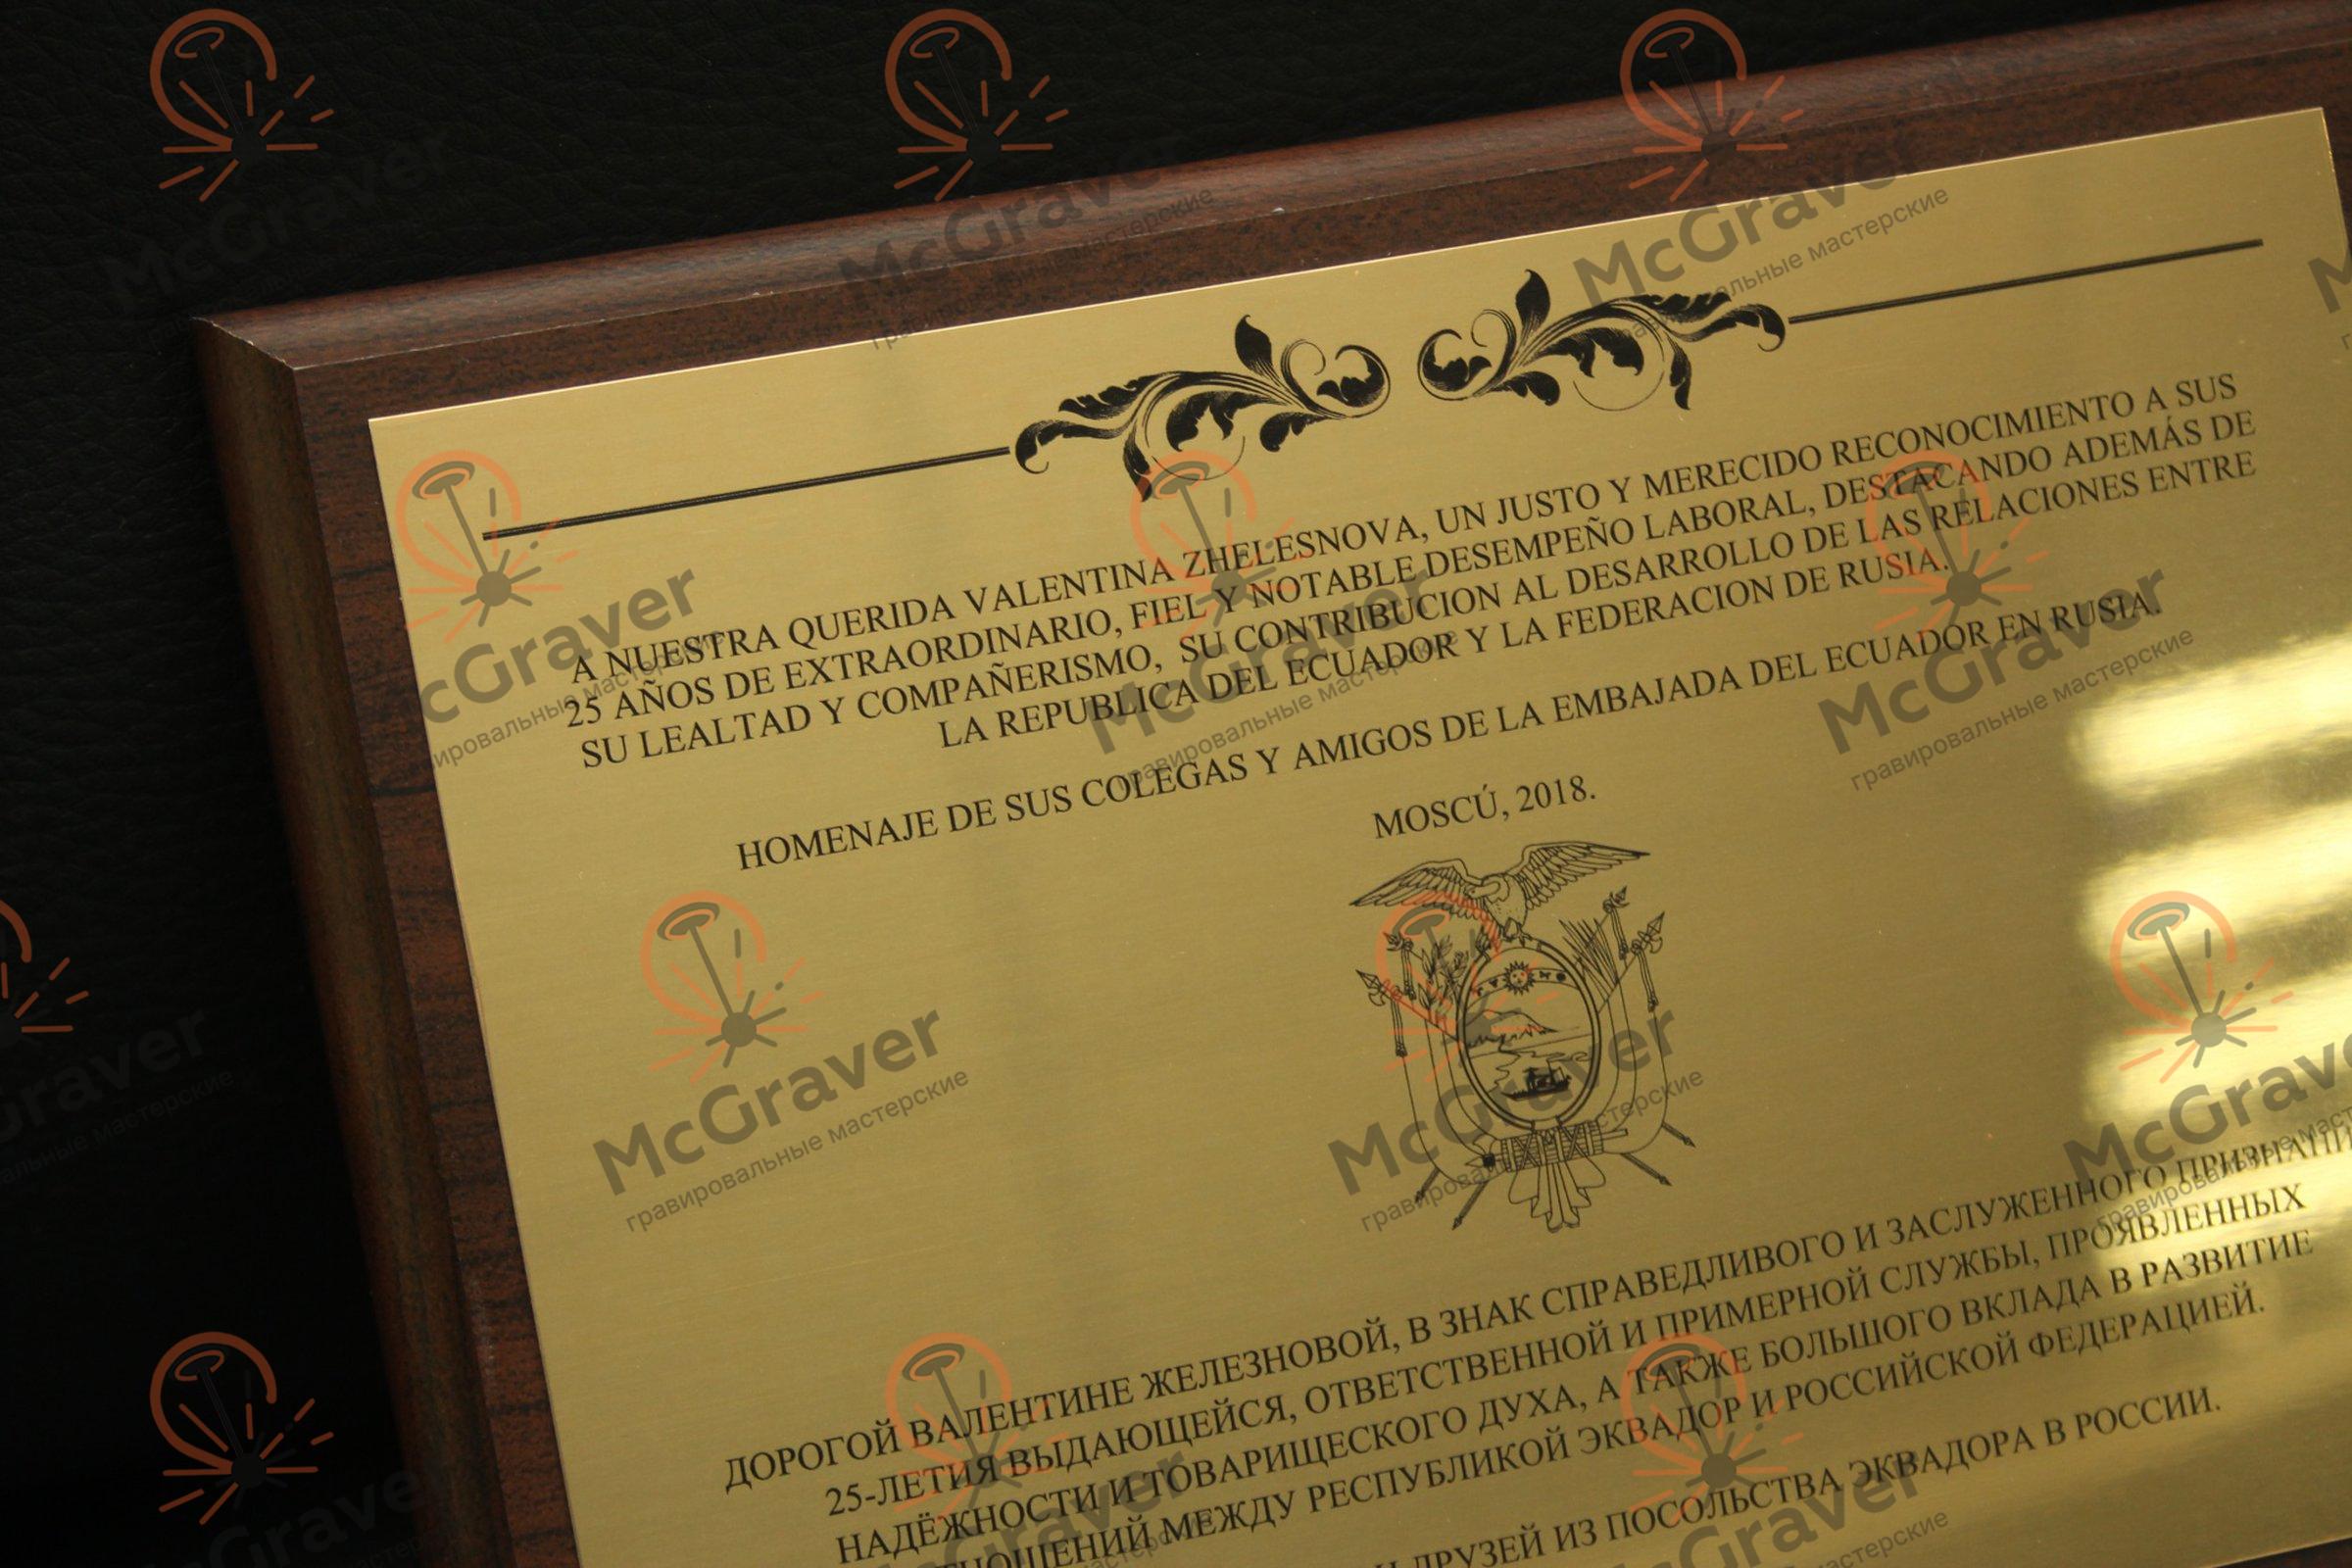 A NUESTRA QUERIDA VALENTINA ZHELESNOVA, UN JUSTO Y MERECIDO RECONOCIMIENTO A SUS
25 AÑOS DE EXTRAORDINARIO, FIEL Y NOTABLE DESEMPEÑO LABORAL, DESTACANDO ADEMÁS DE
SU LEALTAD Y COMPAÑERISMO, SU CONTRIBUCION AL DESARROLLO DE LAS RELACIONES ENTRE
LA REPUBLICA DEL ECUADOR Y LA FEDERACION DE RUSIA.
HOMENAJE DE SUS COLEGAS Y AMIGOS DE LA EMBAJADA DEL ECUADOR EN RUSIA.
MOSCÚ, 2018.
ДОРОГОЙ ВАЛЕНТИНЕ ЖЕЛЕЗНОВОЙ, В ЗНАК СПРАВЕДЛИВОГО И ЗАСЛУЖЕННОГО
25-ЛЕТИЯ ВЫДАЮЩЕЙСЯ, ОТВЕТСТВЕННОЙ И ПРИМЕРНОЙ СЛУЖБЫ, ПРОЯВЛЕННЫХ
НАДЁЖНОСТИ И ТОВАРИЩЕСКОГО ДУХА, А ТАКЖЕ БОЛЬШОГО ВКЛАДА В РАЗВИТИЕ
МЕЖДУ РЕСПУБЛИКОЙ ЭКВАДОР И РОССИЙСКОЙ ФЕДЕРАЦИЕЙ.
ДРУЗЕЙ ИЗ ПОСОЛЬСТВА ЭКВАДОРА В РОССИИ.
McGraver
гравировальные мастерские